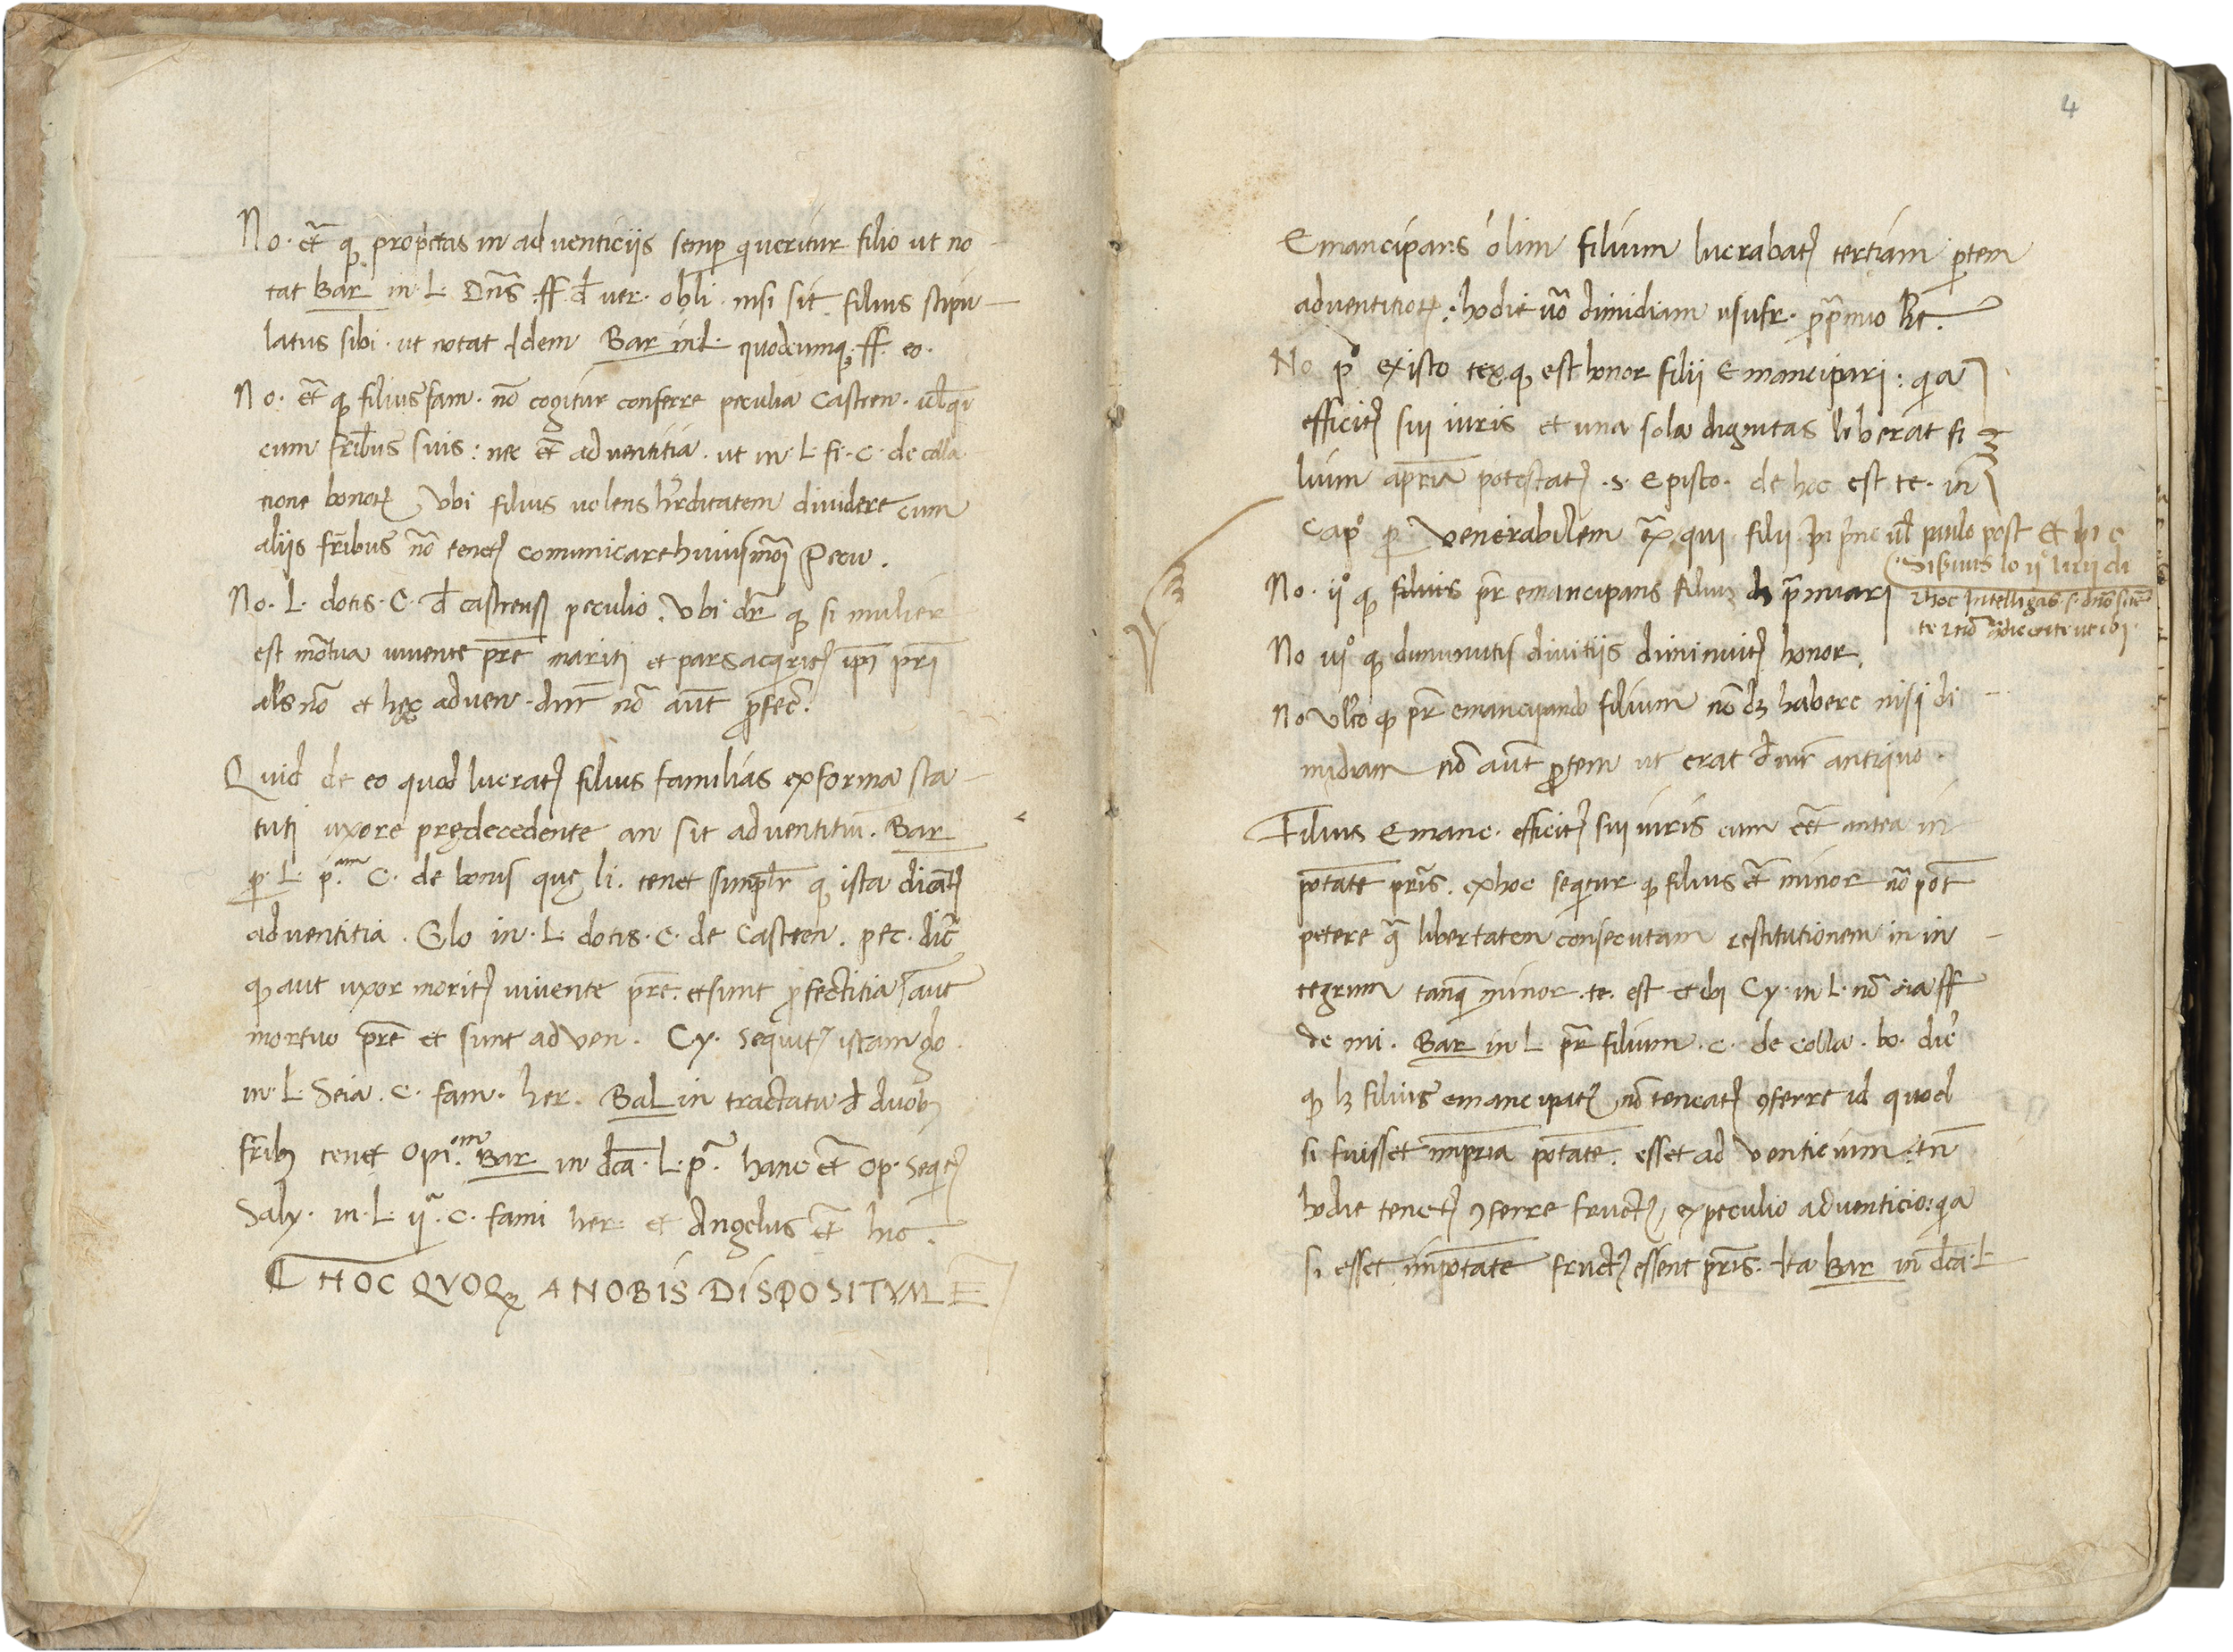 No. et̃ q̨ prop̃etas in adventiciis semp̱ queritur filio ut no
tat Bar in. L. Dn̄s ff. d̄ ver. obl̄i. nisi sit filius stipu
latus sibi. ut notat Idem Bar in L. quodcumq; ff. eo.
No. et̃ q̨ filiusfam. nō cogitur conferre peculia Castren. ul̄ qi
cum fr̄ibus suis: nec et̃ adventitia. ut in. L. fi. C. de colla
tione bonoꝝ Ubi filius volens hęrditatem dividere cum
aliis fr̄ibus nō tenet᷑ comunicare huiusmōi Pecu.
No. L. dotis. C. d̄ castrens̨ peculio. Ubi dr̄ q̨ si mulier
est mõtua vivente pr̄e mariti et pars acqrit᷑ ip̄i pr̄i
als nō et hęc adven. dnr̄ nō aūt ꝓfec̄.
Quid de eo quod lucrat᷑ filius familias ex forma sta
tuti uxore prędecedente an sit adventitiū. Bar
p̱. L. p.am C. de bonis quę li. tenet simpl̄r q̨ ista dicāt᷑
adventitia. Glo in. L. dotis. C. de Castren. pec. dic̄
q̨ aut uxor morit᷑ vivente pr̄e. et sunt ꝓfectitia aut
mortuo pr̄e et sunt adven. Cy. sequit᷑ istam glo.
in. L. Seia. C. fam. her. Bal in tractatu d̄ duob;
fr̄ib; tenet opi.om Bar in dc̄a. L. pa. hanc et̃ op. seqit᷑
Saly. in. L. ija. C. fami her. et Angelus et̃ hic.
C HOC QVOQ; A NOBIS DISPOSITVM E
4
Emancipans olim filium lucrabat᷑ tertiam p̱tem
adventitioꝝ: hodie vō dimidiam usufr.
No po ex isto tex q̨ est honor filii Emancipari: qia
efficit᷑ sui iuris et una sola dignitas liberat fi
lium a pr̄ia potestate .s. Episco. de hoc est te. in
Capo p̱ Venerabilem qui filii in ul̄ paulo post
No. ijo q̨ pr̄ emancipans filium
No q̨ diminutis divitiis diminuit᷑ honor.
No ulto q̨ pr̄ emancipando filium nō dȝ habere nisi di
midiam nō aūt p̱tem ut erat antiquo.
Filius Emanc. efficit᷑ sui iuris cum eēt antea in
potate pr̄is. ex hoc seqitur q̨ filius et̃ minor nō pōt
petere libertatem consecutam restitutionem in in
tegrum tanq̄ minor. te. est et ibi Cy. in L. nō ff
de mi. Bar in L. pr̄ filium. C. de colla. bo. dic̄
q̨ lȝ filius emancipat᷒ nō teneat᷑ ꝯferre id quod
si fuisset in pr̄ia potate. esset adventicium. tn̄
hodie tenet᷑ ꝯferre fruct᷒ ex peculio adventicio: qia
si esset in potate fruct᷒ essent pr̄is. Ita Bar in dc̄a. L